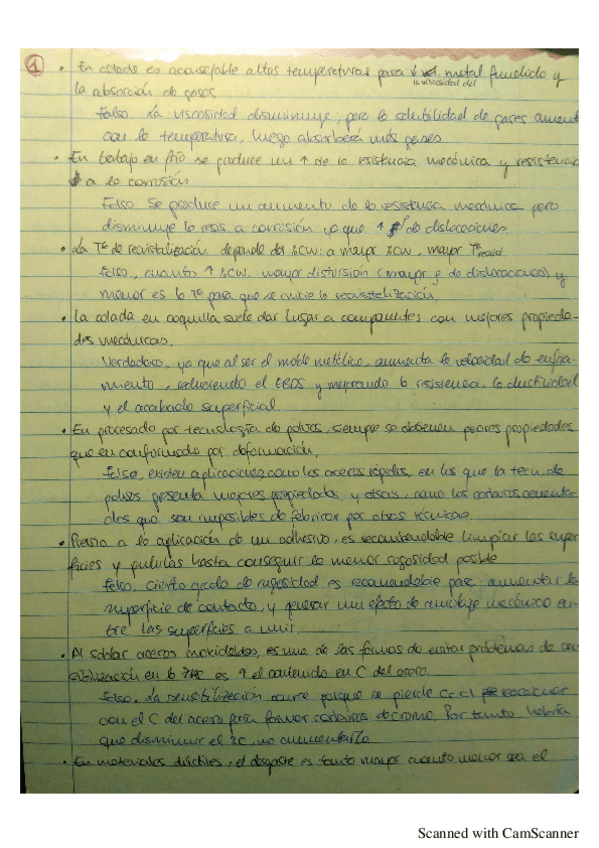 1 • En colada es aconsejable altas temperaturas para ↓ la viscosidad del metal fundido y
la absorción de gases
Falso. La viscosidad disminuye, pero la solubilidad de gases aument
con la temperatura, luego absorberá más gases.
• En trabajo en frío se produce un ↑ de la resistencia mecánica y resistencia
a la corrosión
Falso Se produce un aumento de la resistencia mecánica pero
disminuye la resis a corrosión ya que ↑ de dislocaciones.
• La Tª de recristalización depende del %CW: a mayor %CW, mayor Tª recrist
Falso, cuanto ↑ %CW mayor distorsión (mayor ρ de dislocaciones) y
menor es la Tª para que se inicie la recristalización.
• La colada en coquilla suele dar lugar a componentes con mejores propieda-
des mecánicas.
Verdadero, ya que al ser el molde metálico, aumenta la velocidad de enfria-
miento, reduciendo el EBDS y mejorando la resistencia, la ductilidad
y el acabado superficial.
• En procesado por tecnología de polvos, siempre se obtienen peores propiedades
que en conformado por deformación.
Falso, existen aplicaciones como los aceros rápidos, en los que la tecn. de
polvos presenta mejores propiedades, y otras, como los carburos cementa-
dos que son imposibles de fabricar por otras técnicas.
• Previo a la aplicación de un adhesivo, es recomendable limpiar las super
ficies y pulirlas hasta conseguir la menor rugosidad posible
Falso, cierto grado de rugosidad es recomendable para aumentar la
superficie de contacto, y generar un efecto de anclaje mecánico en-
tre las superficies a unir.
• Al soldar aceros inoxidables, es una de las formas de evitar problemas de sen
sibilización en la ZAC es ↑ el contenido en C del acero.
Falso. La sensibilización ocurre porque se pierde Cr al reaccionar
con el C del acero para formar carburos de cromo. Por tanto habría
que disminuir el %C, no aumentarlo
• En materiales dúctiles, el desgaste es tanto mayor cuanto menor sea el
Scanned with CamScanner